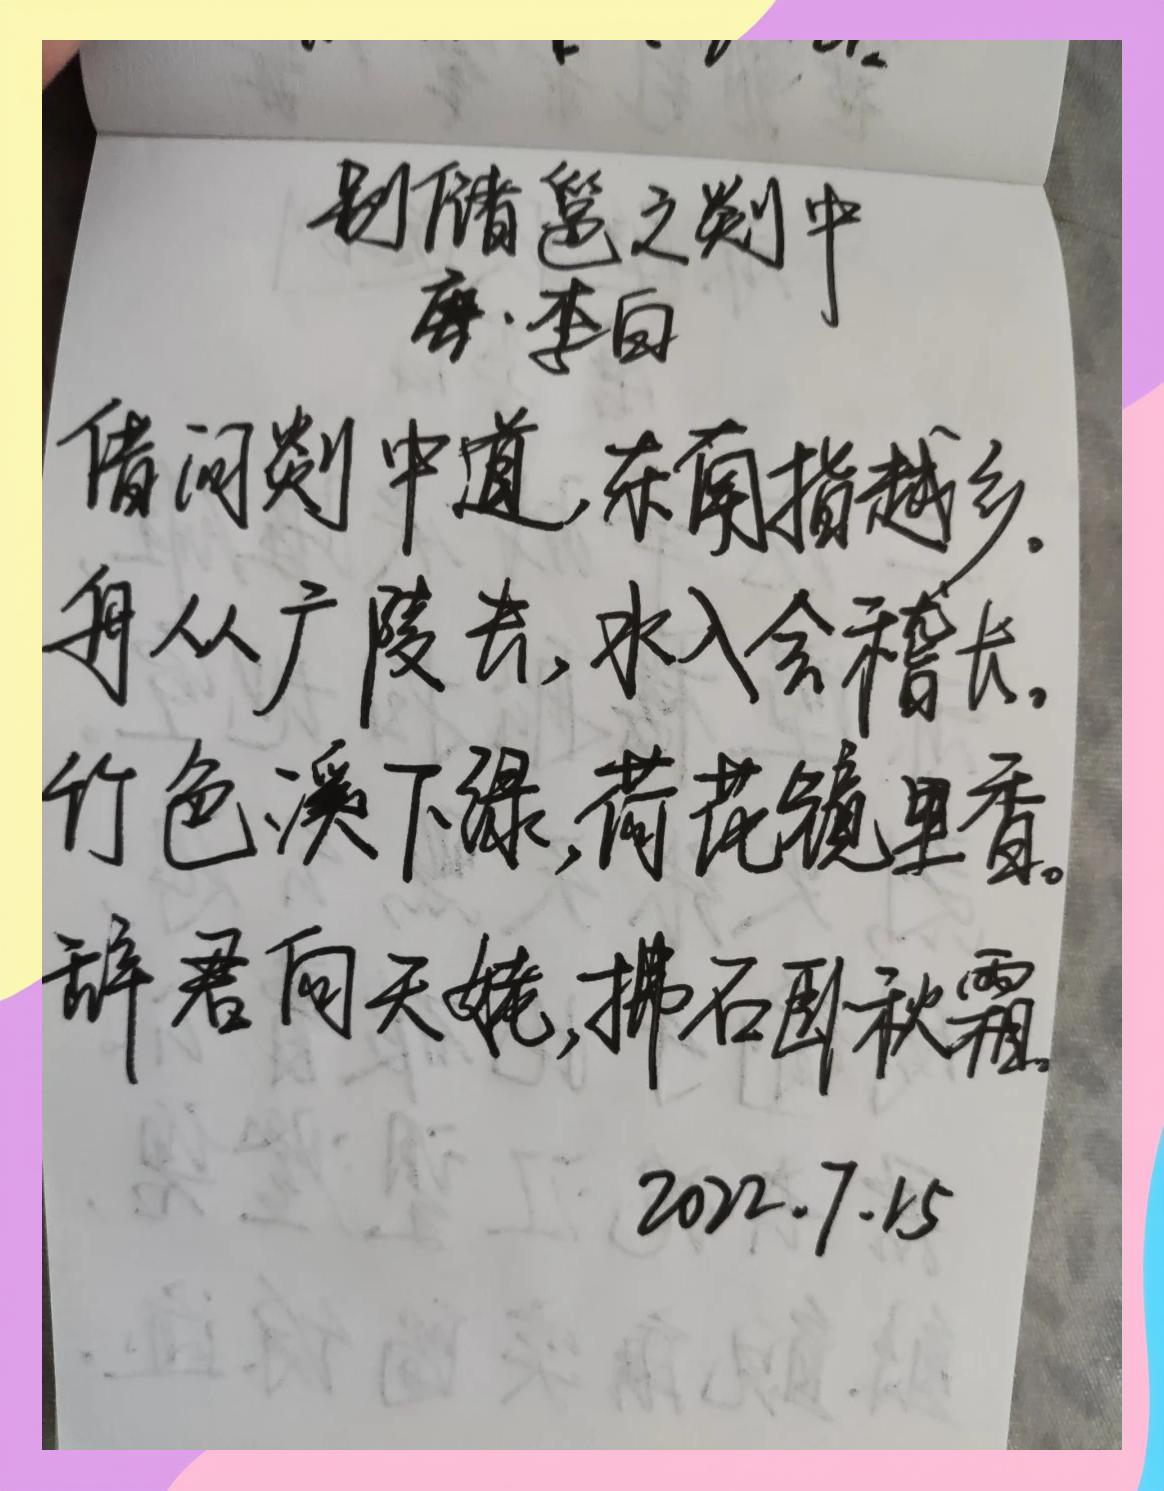 别储邕之剡中
唐·李白
借问剡中道,东南指越乡.
舟从广陵去,水入会稽长。
竹色溪下绿,荷花镜里香。
辞君向天姥,拂石卧秋霜。
2022.7.15